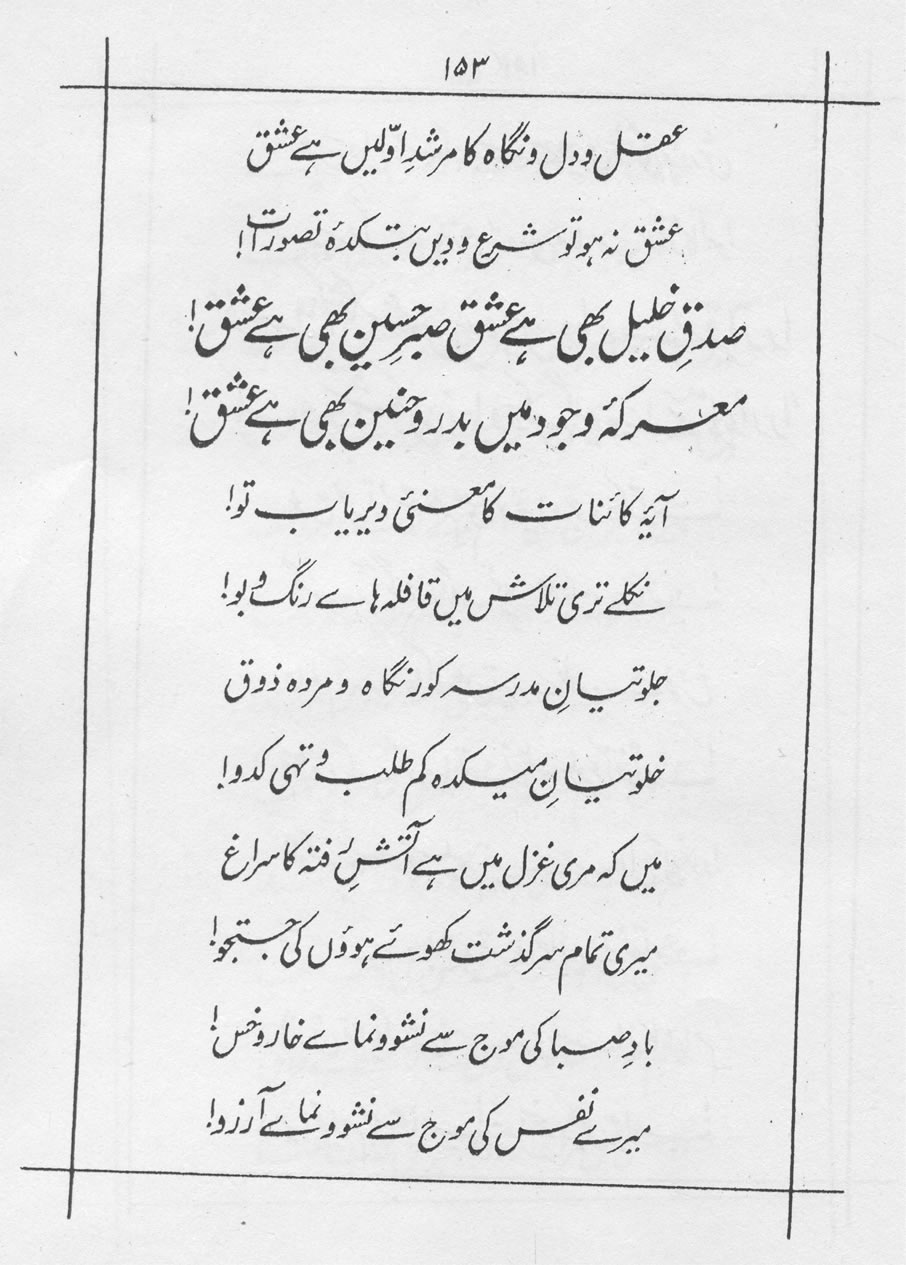 ۱۵۳
عقل و دل و نگاہ کا مرشدِ اوّلیں ہے عشق
عشق نہ ہو تو شرع و دیں بتکدۂ تصورات!
صدقِ خلیل بھی ہے عشق صبرِ حسین بھی ہے عشق!
معرکۂ وجود میں بدر و حنین بھی ہے عشق!
آیۂ کائنات کا معنئ دیریاب تو!
نکلے تری تلاش میں قافلہ ہاے رنگ و بو!
جلوتیانِ مدرسہ کور نگاہ و مردہ ذوق
خلوتیانِ میکدہ کم طلب و تہی کدو!
میں کہ مری غزل میں ہے آتشِ رفتہ کا سراغ
میری تمام سرگذشت کھوئے ہوؤں کی جستجو!
بادِ صبا کی موج سے نشوونماے خار و خس!
میرے نفس کی موج سے نشوونماے آرزو!